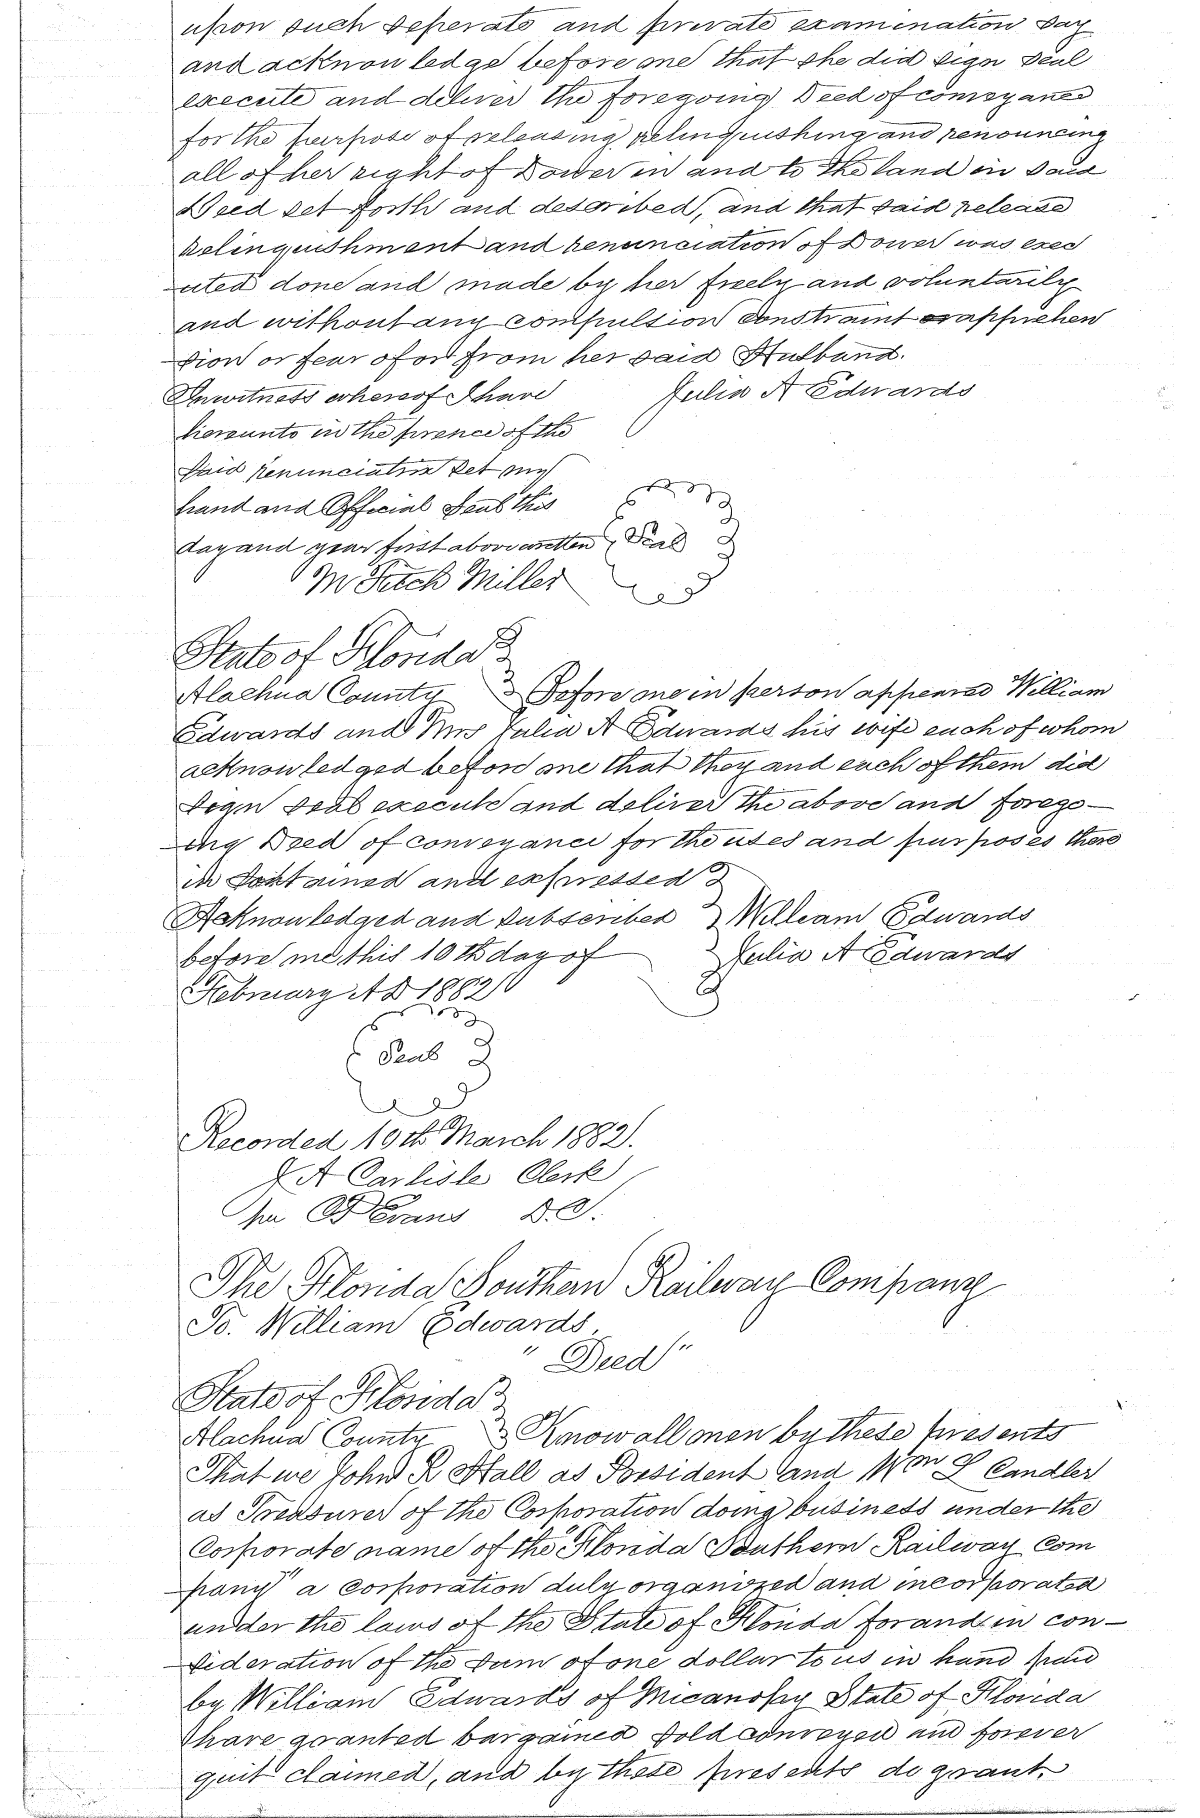 upon such seperate and private examination say
and acknowledge before me that she did sign seal
execute and deliver the foregoing Deed of conveyance
for the purpose of releasing relinquishing and renouncing
all of her right of Dower in and to the land in said
Deed set forth and described, and that said release
relinquishment and renunciation of Dower was exec
uted done and made by her freely and voluntarily
and without any compulsion constraint or apprehen
sion or fear of or from her said Husband.
In witness whereof I have Julia A Edwards
hereunto in the prence of the
said renunciation set my
hand and Official Seal this
day and year first above written Seal
M Fitch Miller
State of Florida
Alachua County Before me in person appeared William
Edwards and Mrs Julia A Edwards his wife each of whom
acknowledged before me that they and each of them did
sign seal execute and deliver the above and forego-
ing Deed of conveyance for the uses and purposes there
in contained and expressed
Acknowledged and subscribed William Edwards
before me this 10th day of Julia A Edwards
February A D 1882
Seal
Recorded 10th March 1882.
J A Carlisle Clerk
Per Evans D.C.
The Florida Southern Railway Company
To. William Edwards,
" Deed "
State of Florida
Alachua County Know all men by these presents
That we John R Hall as President and Wm L Candler
as Treasurer of the Corporation doing business under the
Corporate name of the "Florida Southern Railway Com
pany" a corporation duly organized and incorporated
under the laws of the State of Florida for and in con-
sideration of the sum of one dollar to us in hand paid
by William Edwards of Micanopy State of Florida
have granted bargained sold conveyed and forever
quit claimed, and by these presents do grant.